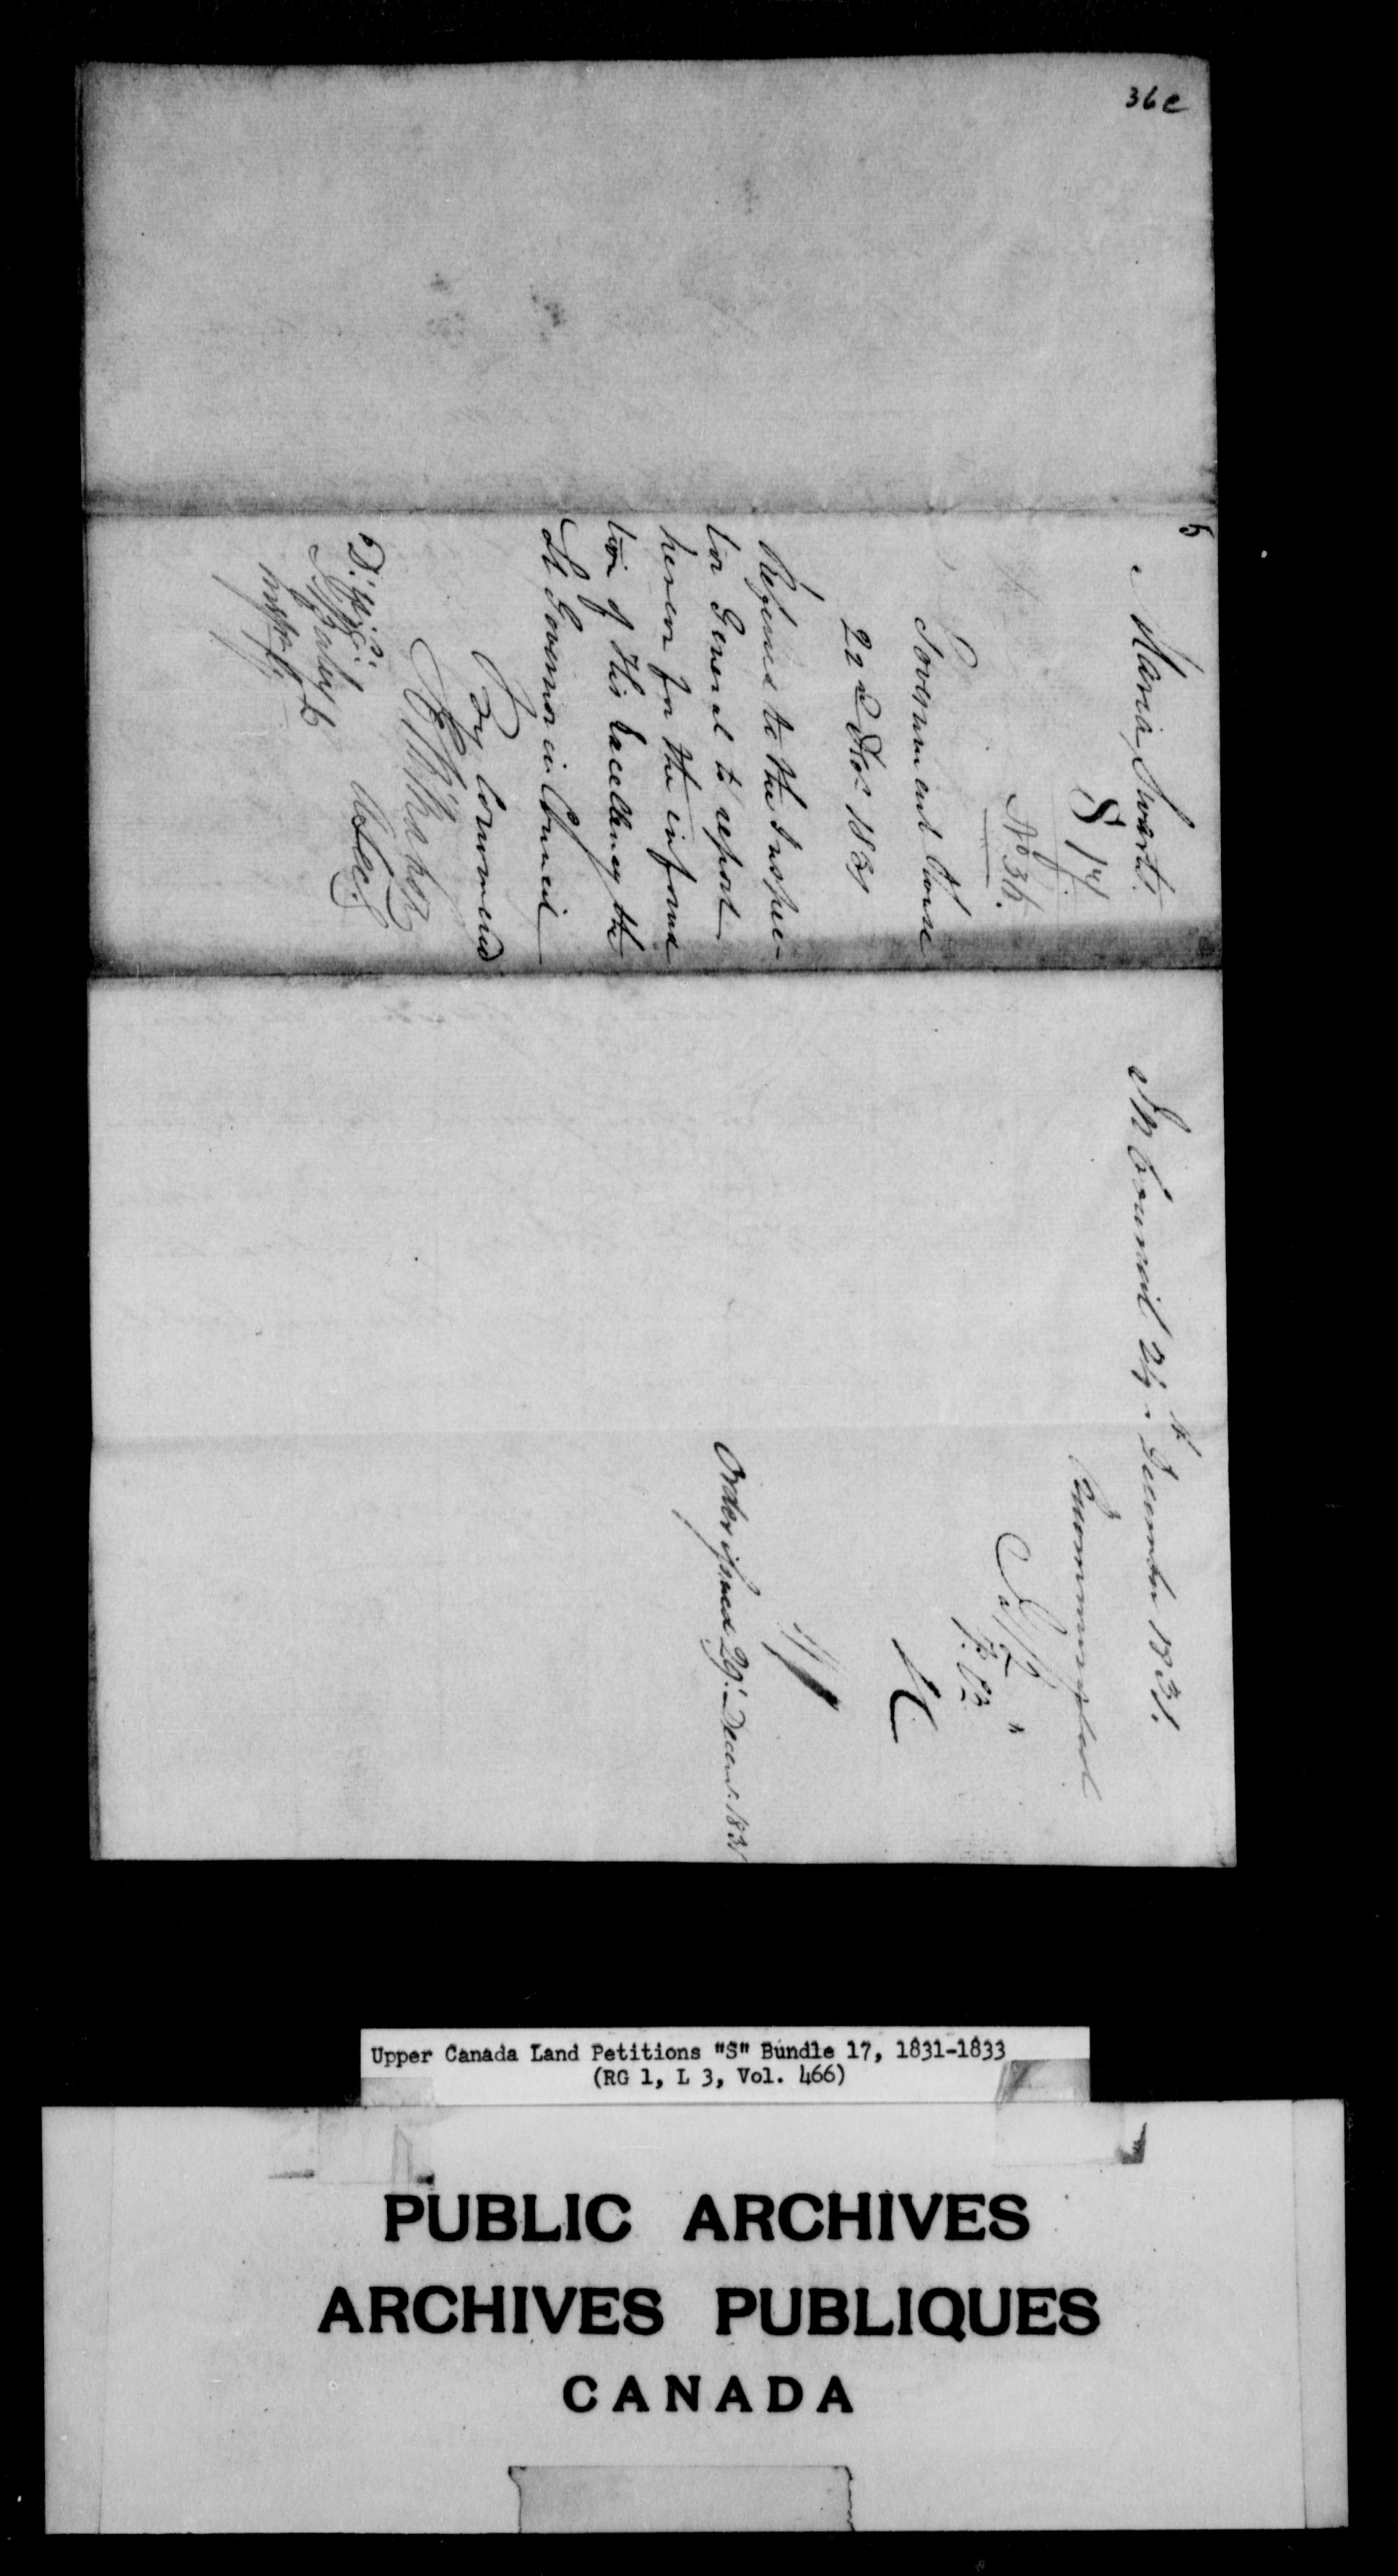 36e
5
Maria Swartz
S 17
No 36.
Government House
22d Nov 1831
Referred to the Inspec-
tor General to report
hereon for the informa
tion of His Excellency the
Lt Governor in Council
By Command
In Council 24th December 1831.
Recommended
P. C.
Order issued 29. Decemr. 1831
Upper Canada Land Petitions "S" Bundle 17, 1831-1833
(RG 1, L 3, Vol. 466)
PUBLIC ARCHIVES
ARCHIVES PUBLIQUES
CANADA